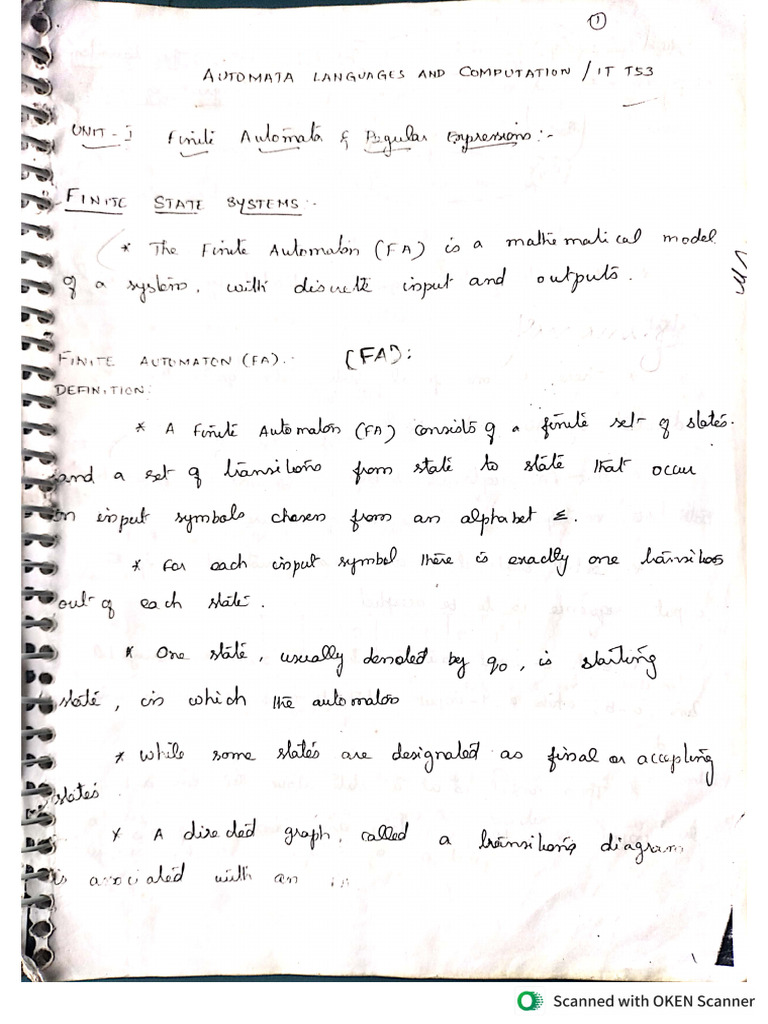 1
AUTOMATA LANGUAGES AND COMPUTATION / IT T53
UNIT - I Finite Automata & Regular Expressions:-
FINITE STATE SYSTEMS:-
* The Finite Automaton (FA) is a mathematical model
of a system, with discrete input and outputs.
FINITE AUTOMATON (FA):. (FA):
DEFINITION:
* A Finite Automaton (FA) consists of a finite set of states.
and a set of transitions from state to state that occur
on input symbols chosen from an alphabet Σ.
* For each input symbol there is exactly one transition
out of each state.
* One state, usually denoted by q0, is starting
state, in which the automaton
* while some states are designated as final or accepting
states.
* A directed graph, called a transitions diagram
is associated with an
Scanned with OKEN Scanner